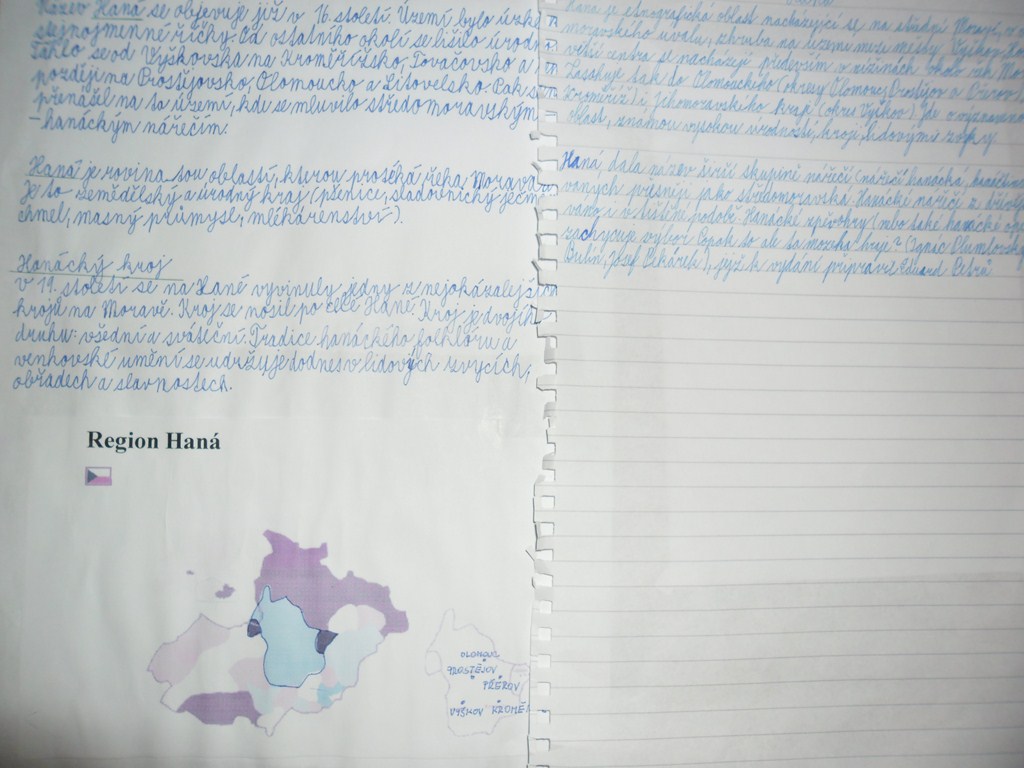 Název Haná se objevuje již v 16. století. Území bylo
stejnojmenné říčky. Od ostatního okolí se lišilo
Táhlo se od Vyškovska na Kroměřížsko, Tovačovsko a
později na Prostějovsko, Olomoucko a Litovelsko. Pak
přenášel na to území, kde se mluvilo středomoravským
-hanáckým nářečím.
Haná je rovinatou oblastí, kterou protéká řeka Morava.
Je to zemědělský a úrodný kraj (pšenice, sladovnický
chmel, masný průmysl, mlékárenství).
Hanácký kroj
V 19. století se na Hané vyvinuly jedny z
krojů na Moravě. Kroj se nosil po celé Hané. Kroj je
druhu: všední a sváteční. Tradice hanáckého folklóru a
venkovské umění se udržuje dodnes v lidových zvycích,
obřadech a slavnostech.
Region Haná
OLOMOUC
PROSTĚJOV
PŘEROV
VYŠKOV KROMĚ
Haná je etnografická oblast nacházející se na střední Moravě
moravského úvalu, zhruba na území mezi městy Vyškov,
se nacházejí především v nížinách okolo řek
Zasahuje tak do Olomouckého (okresy Olomouc, Prostějov a Přerov),
Kroměříž) i Jihomoravského kraje (okres Vyškov). Jde o
oblast, známou vysokou úrodností, kroji, lidovými zvyky
Haná dala název širší skupině nářečí (nářečí hanácká,
vaných přesněji jako středomoravská. Hanácké nářečí
váno i v tištěné podobě. Hanácké
zachycuje výbor (Ignác
Josef ), jejž k vydání připravil Eduard Petrů